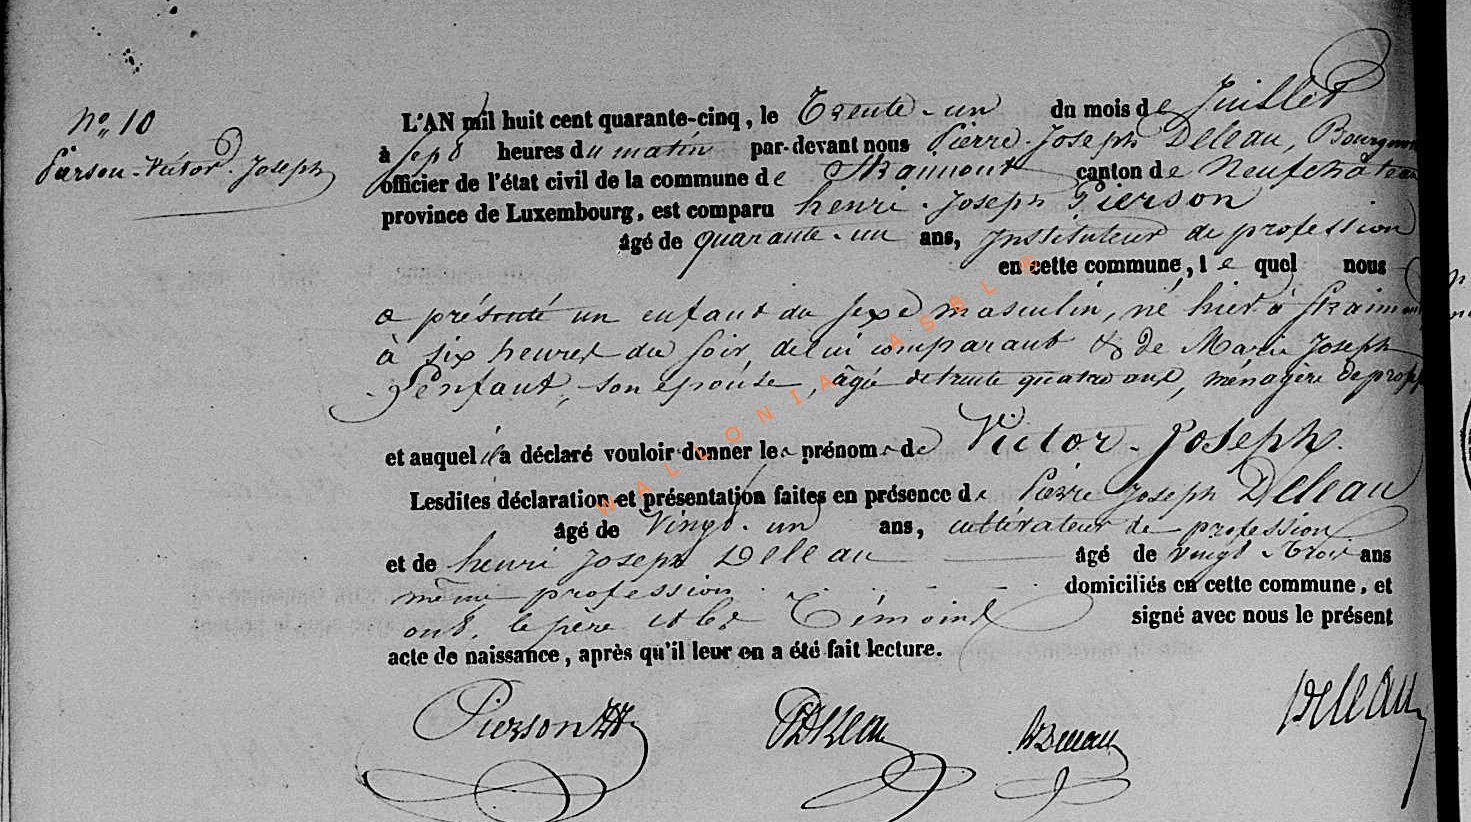 No. 10
Pierson Victor Joseph
L'AN mil huit cent quarante-cinq, le Trente-un du mois de Juillet
à sept heures du matin par-devant nous Pierre-Joseph Deleau, Bourgmes
officier de l'état civil de la commune de Straimont canton de Neufchâteau
province de Luxembourg, est comparu henri-Joseph Pierson
âgé de quarante-un ans, Instituteur de profession
en cette commune, le quel nous
a présenté un enfant du sexe masculin, né hier à Straimont
à six heures du soir, de lui comparant & de Marie Joseph
Penfant, son épouse, âgée de trente quatre ans, ménagère de prof
et auquel il a déclaré vouloir donner les prénoms de Victor-Joseph.
Lesdites déclaration et présentation faites en présence de Pierre Joseph Deleau
âgé de Vingt-un ans, cultivateur de profession
et de henri Joseph Deleau âgé de vingt-trois ans
même profession domiciliés en cette commune, et
ont, le père et les Témoins signé avec nous le présent
acte de naissance, après qu'il leur en a été fait lecture.
Pierson Deleau
WALLONIA ASBL